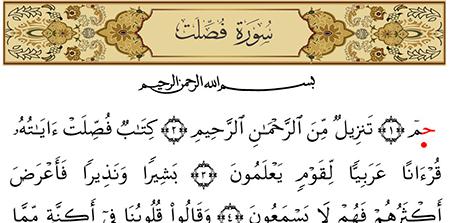 سُورَةُ فُصِّلَتْ
بسم الله الرحمن الرحيم
حمٓ ﴿١﴾ تَنزِيلٌ مِّنَ ٱلرَّحْمَٰنِ ٱلرَّحِيمِ ﴿٢﴾ كِتَٰبٌ فُصِّلَتْ ءَايَٰتُهُۥ
قُرْءَانًا عَرَبِيًّا لِّقَوْمٍ يَعْلَمُونَ ﴿٣﴾ بَشِيرًا وَنَذِيرًا فَأَعْرَضَ
أَكْثَرُهُمْ فَهُمْ لَا يَسْمَعُونَ ﴿٤﴾ وَقَالُوا۟ قُلُوبُنَا فِىٓ أَكِنَّةٍ مِّمَّا